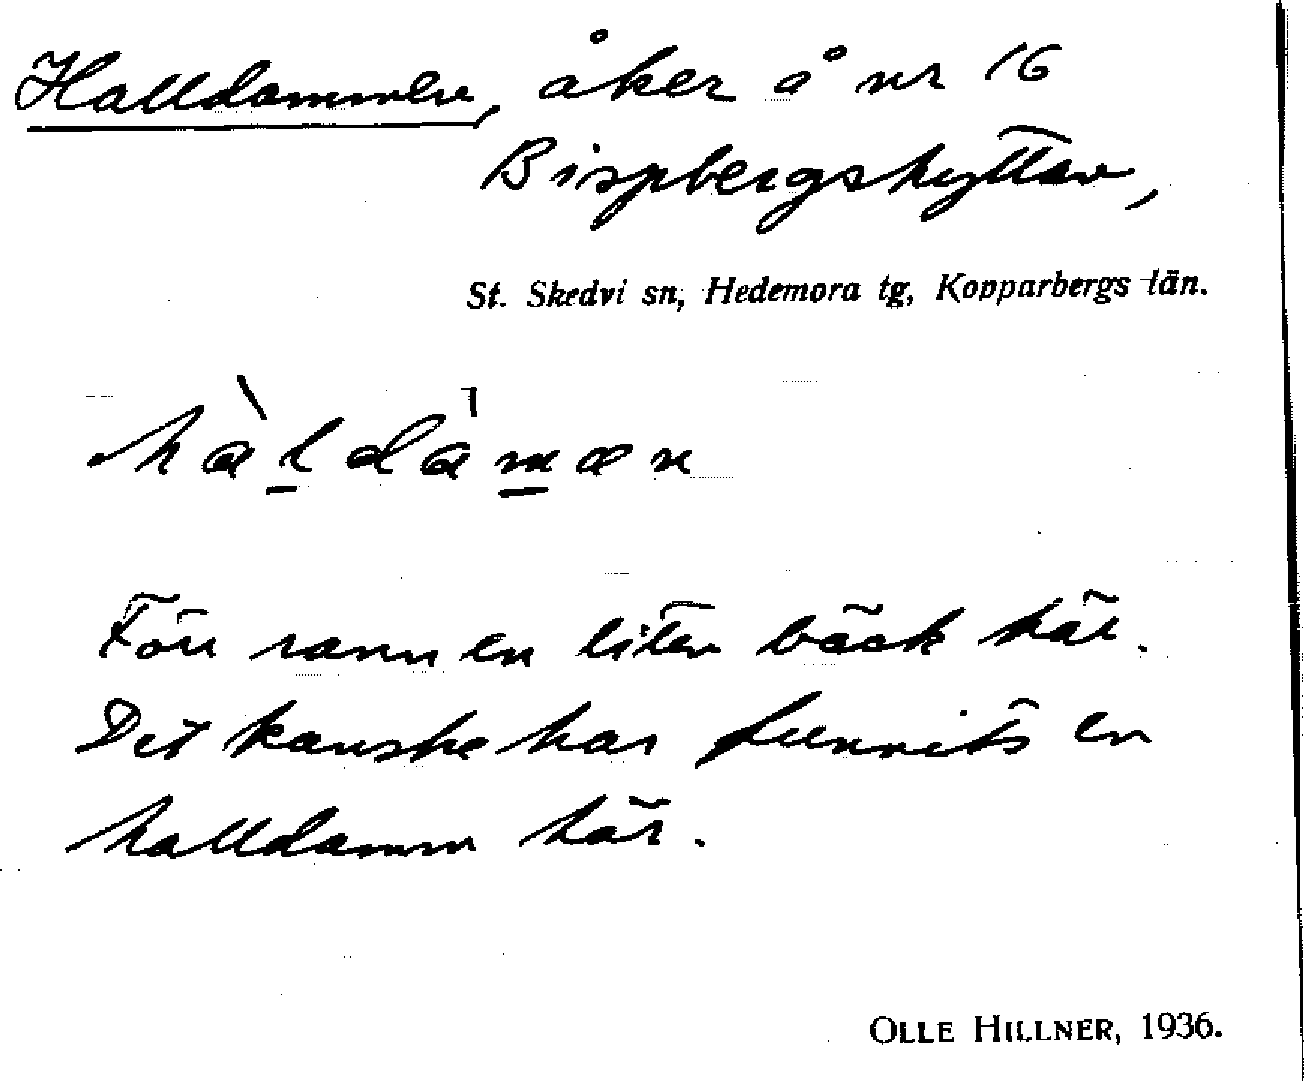 Halldammen, åker å nr 16
Bispbergshyttan,
St. Skedvi sn, Hedemora tg, Kopparbergs län.
hàl̲dàm̲æn
Förr rann en liten bäck här.
Det kanske har funnits en
halldamm här.
OLLE HILLNER, 1936.